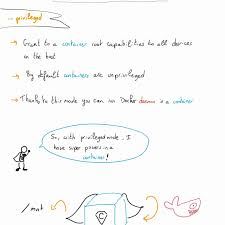 --privileged
→ Grant to a container root capabilities to all devices
in the host
→ By default containers are unprivileged
→ Thanks to this mode you can run Docker daemon in a container
So, with privileged mode, I
have super powers in a
container!
/mnt
C